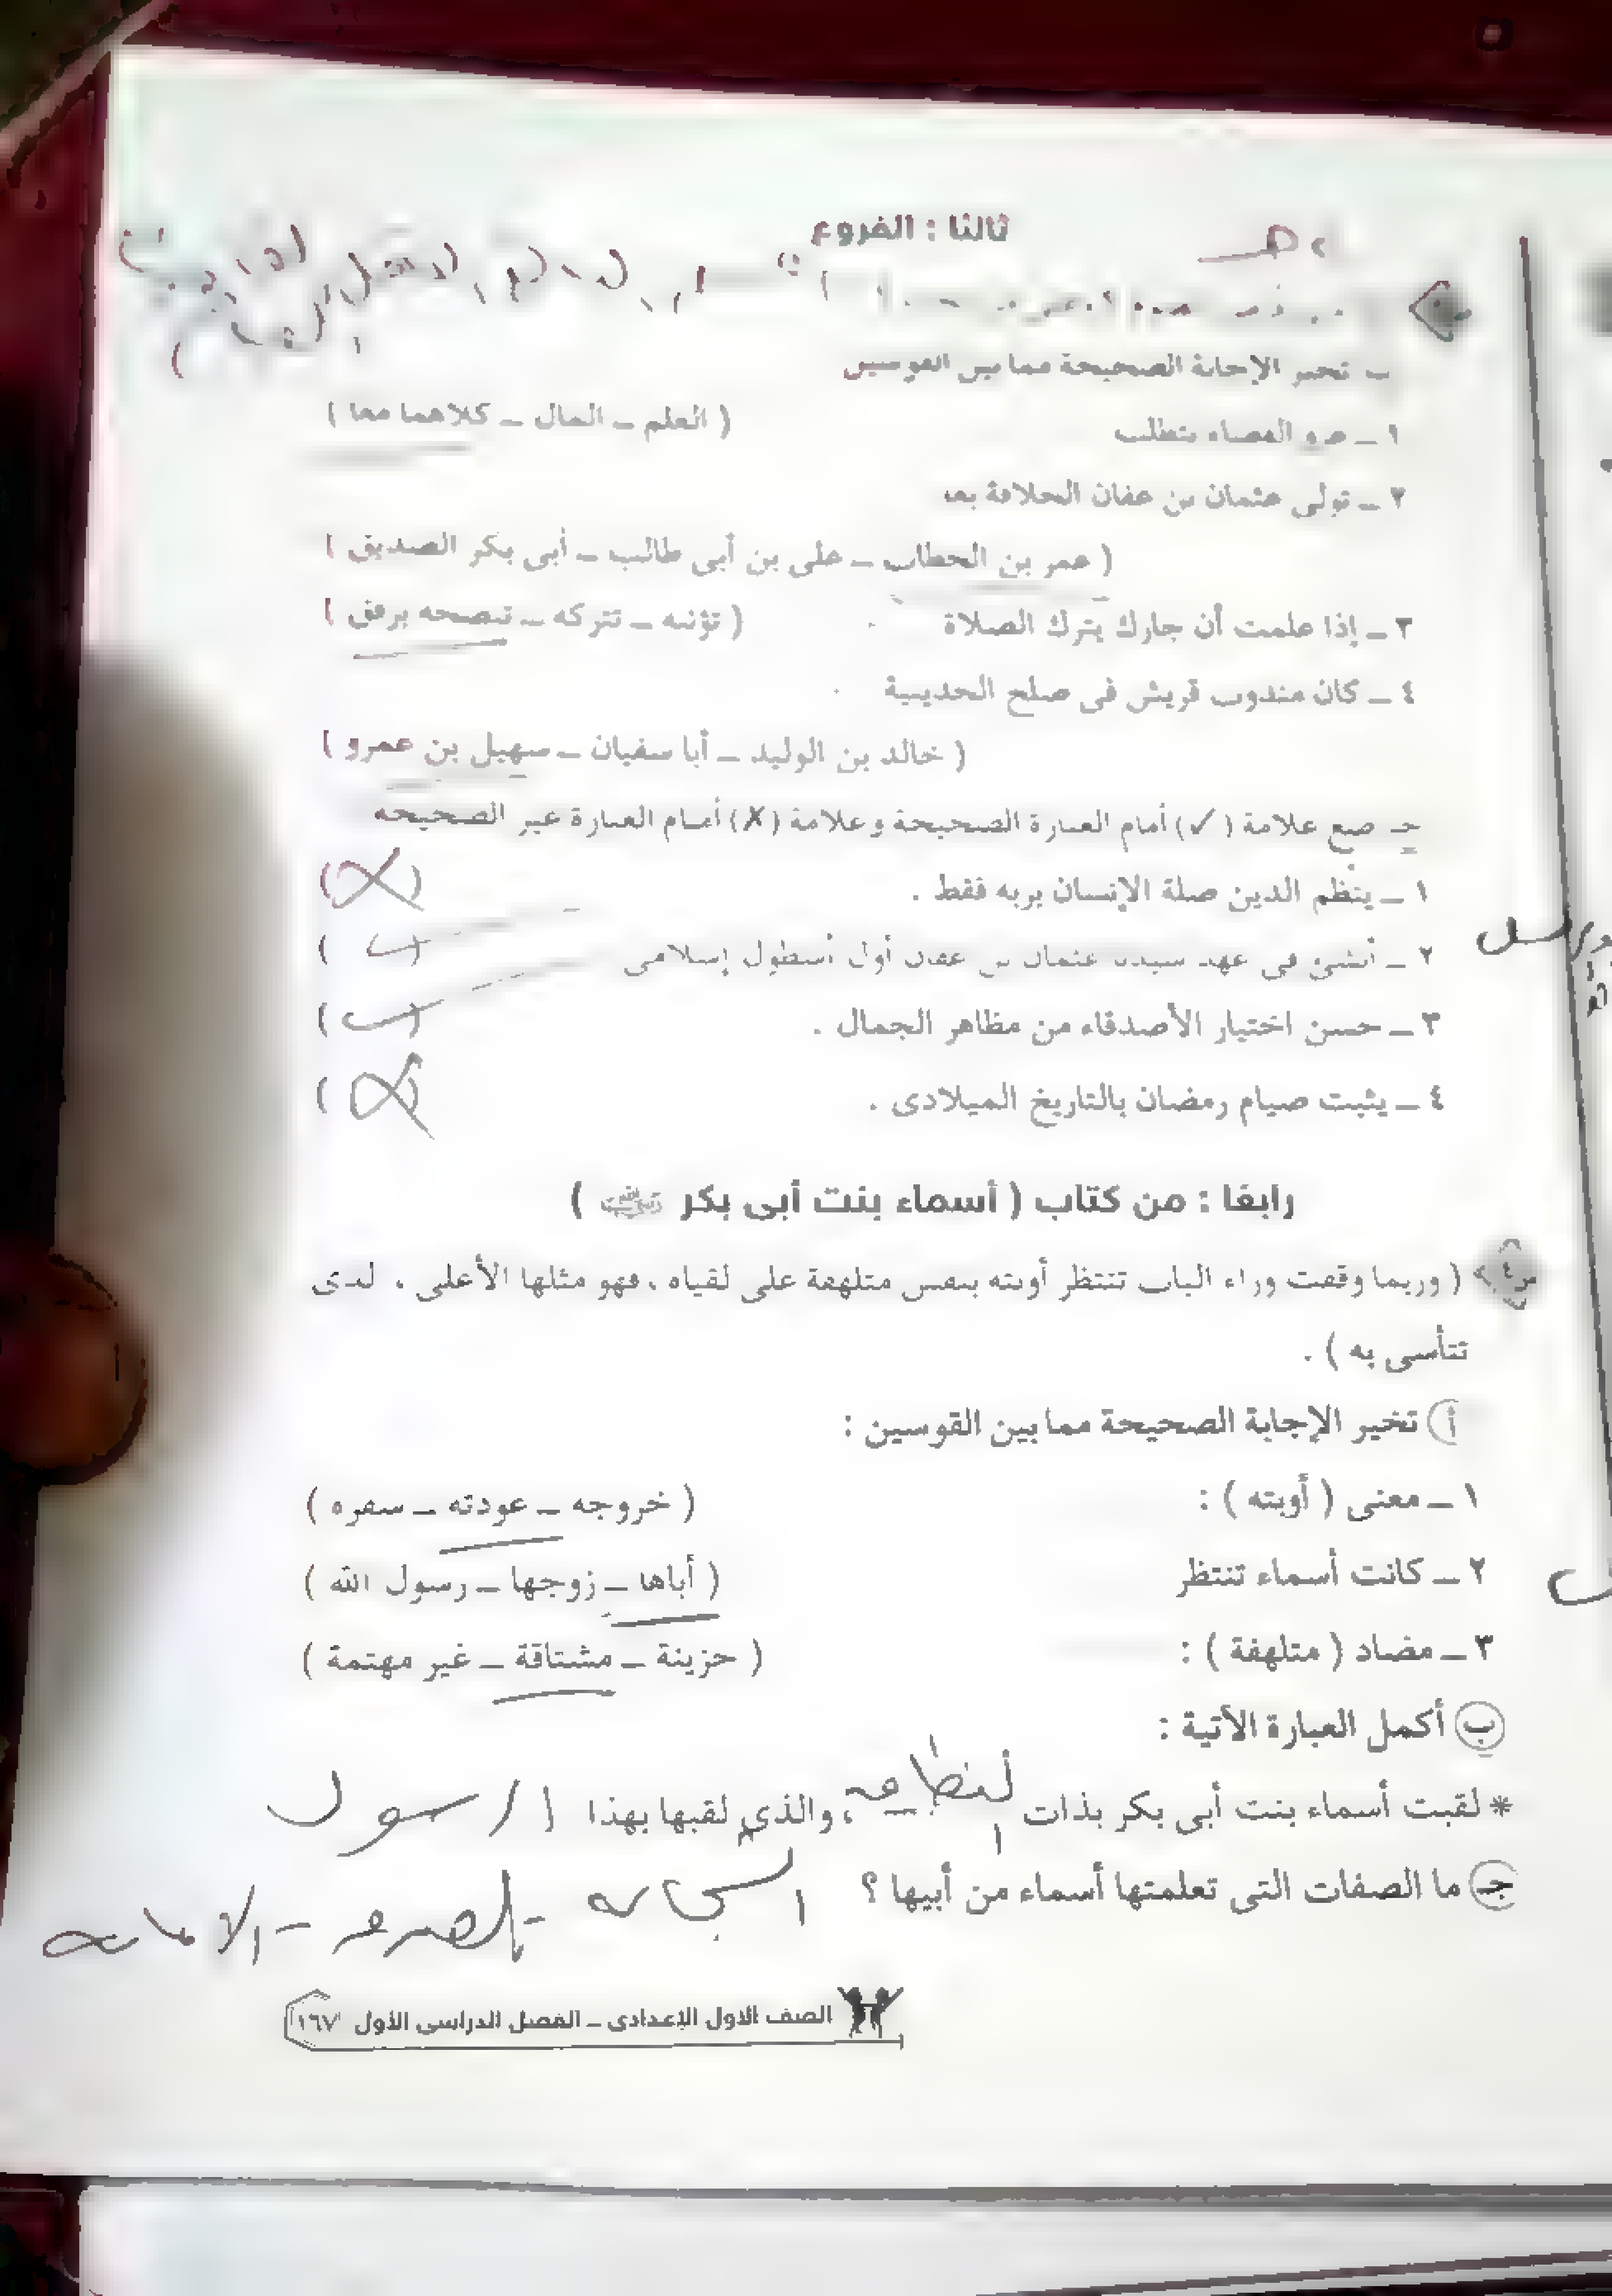 ثالثا : الفروع
ب ـ تخير الإجابة الصحيحة مما بين القوسين
١ ـ غزو الفضاء يتطلب ( العلم ـ المال ـ كلاهما معا )
٢ ـ تولى عثمان بن عفان الخلافة بعد
( عمر بن الخطاب ـ على بن أبى طالب ـ أبى بكر الصديق )
٣ ـ إذا علمت أن جارك يترك الصلاة ( تؤنبه ـ تتركه ـ تنصحه برفق )
٤ ـ كان مندوب قريش فى صلح الحديبية
( خالد بن الوليد ـ أبا سفيان ـ سهيل بن عمرو )
جـ ضع علامة (✓) أمام العبارة الصحيحة وعلامة (✗) أمام العبارة غير الصحيحة
١ ـ ينظم الدين صلة الإنسان بربه فقط . (✗)
٢ ـ أنشئ فى عهد سيدنا عثمان بن عفان أول أسطول إسلامى (✓)
٣ ـ حسن اختيار الأصدقاء من مظاهر الجمال . (✓)
٤ ـ يثبت صيام رمضان بالتاريخ الميلادى . (✗)
رابعا : من كتاب ( أسماء بنت أبى بكر )
س٤ ( وربما وقفت وراء الباب تنتظر أوبته بنفس متلهفة على لقياه ، فهو مثلها الأعلى ، لذى
تتأسى به ) .
أ تخير الإجابة الصحيحة مما بين القوسين :
١ ـ معنى ( أوبته ) : ( خروجه ـ عودته ـ سفره )
٢ ـ كانت أسماء تنتظر ( أباها ـ زوجها ـ رسول الله )
٣ ـ مضاد ( متلهفة ) : ( حزينة ـ مشتاقة ـ غير مهتمة )
ب أكمل العبارة الآتية :
* لقبت أسماء بنت أبى بكر بذات ، والذى لقبها بهذا الرسول
جـ ما الصفات التى تعلمتها أسماء من أبيها ؟ - الامانه
الصف الأول الإعدادى ـ الفصل الدراسى الأول ١٦٧